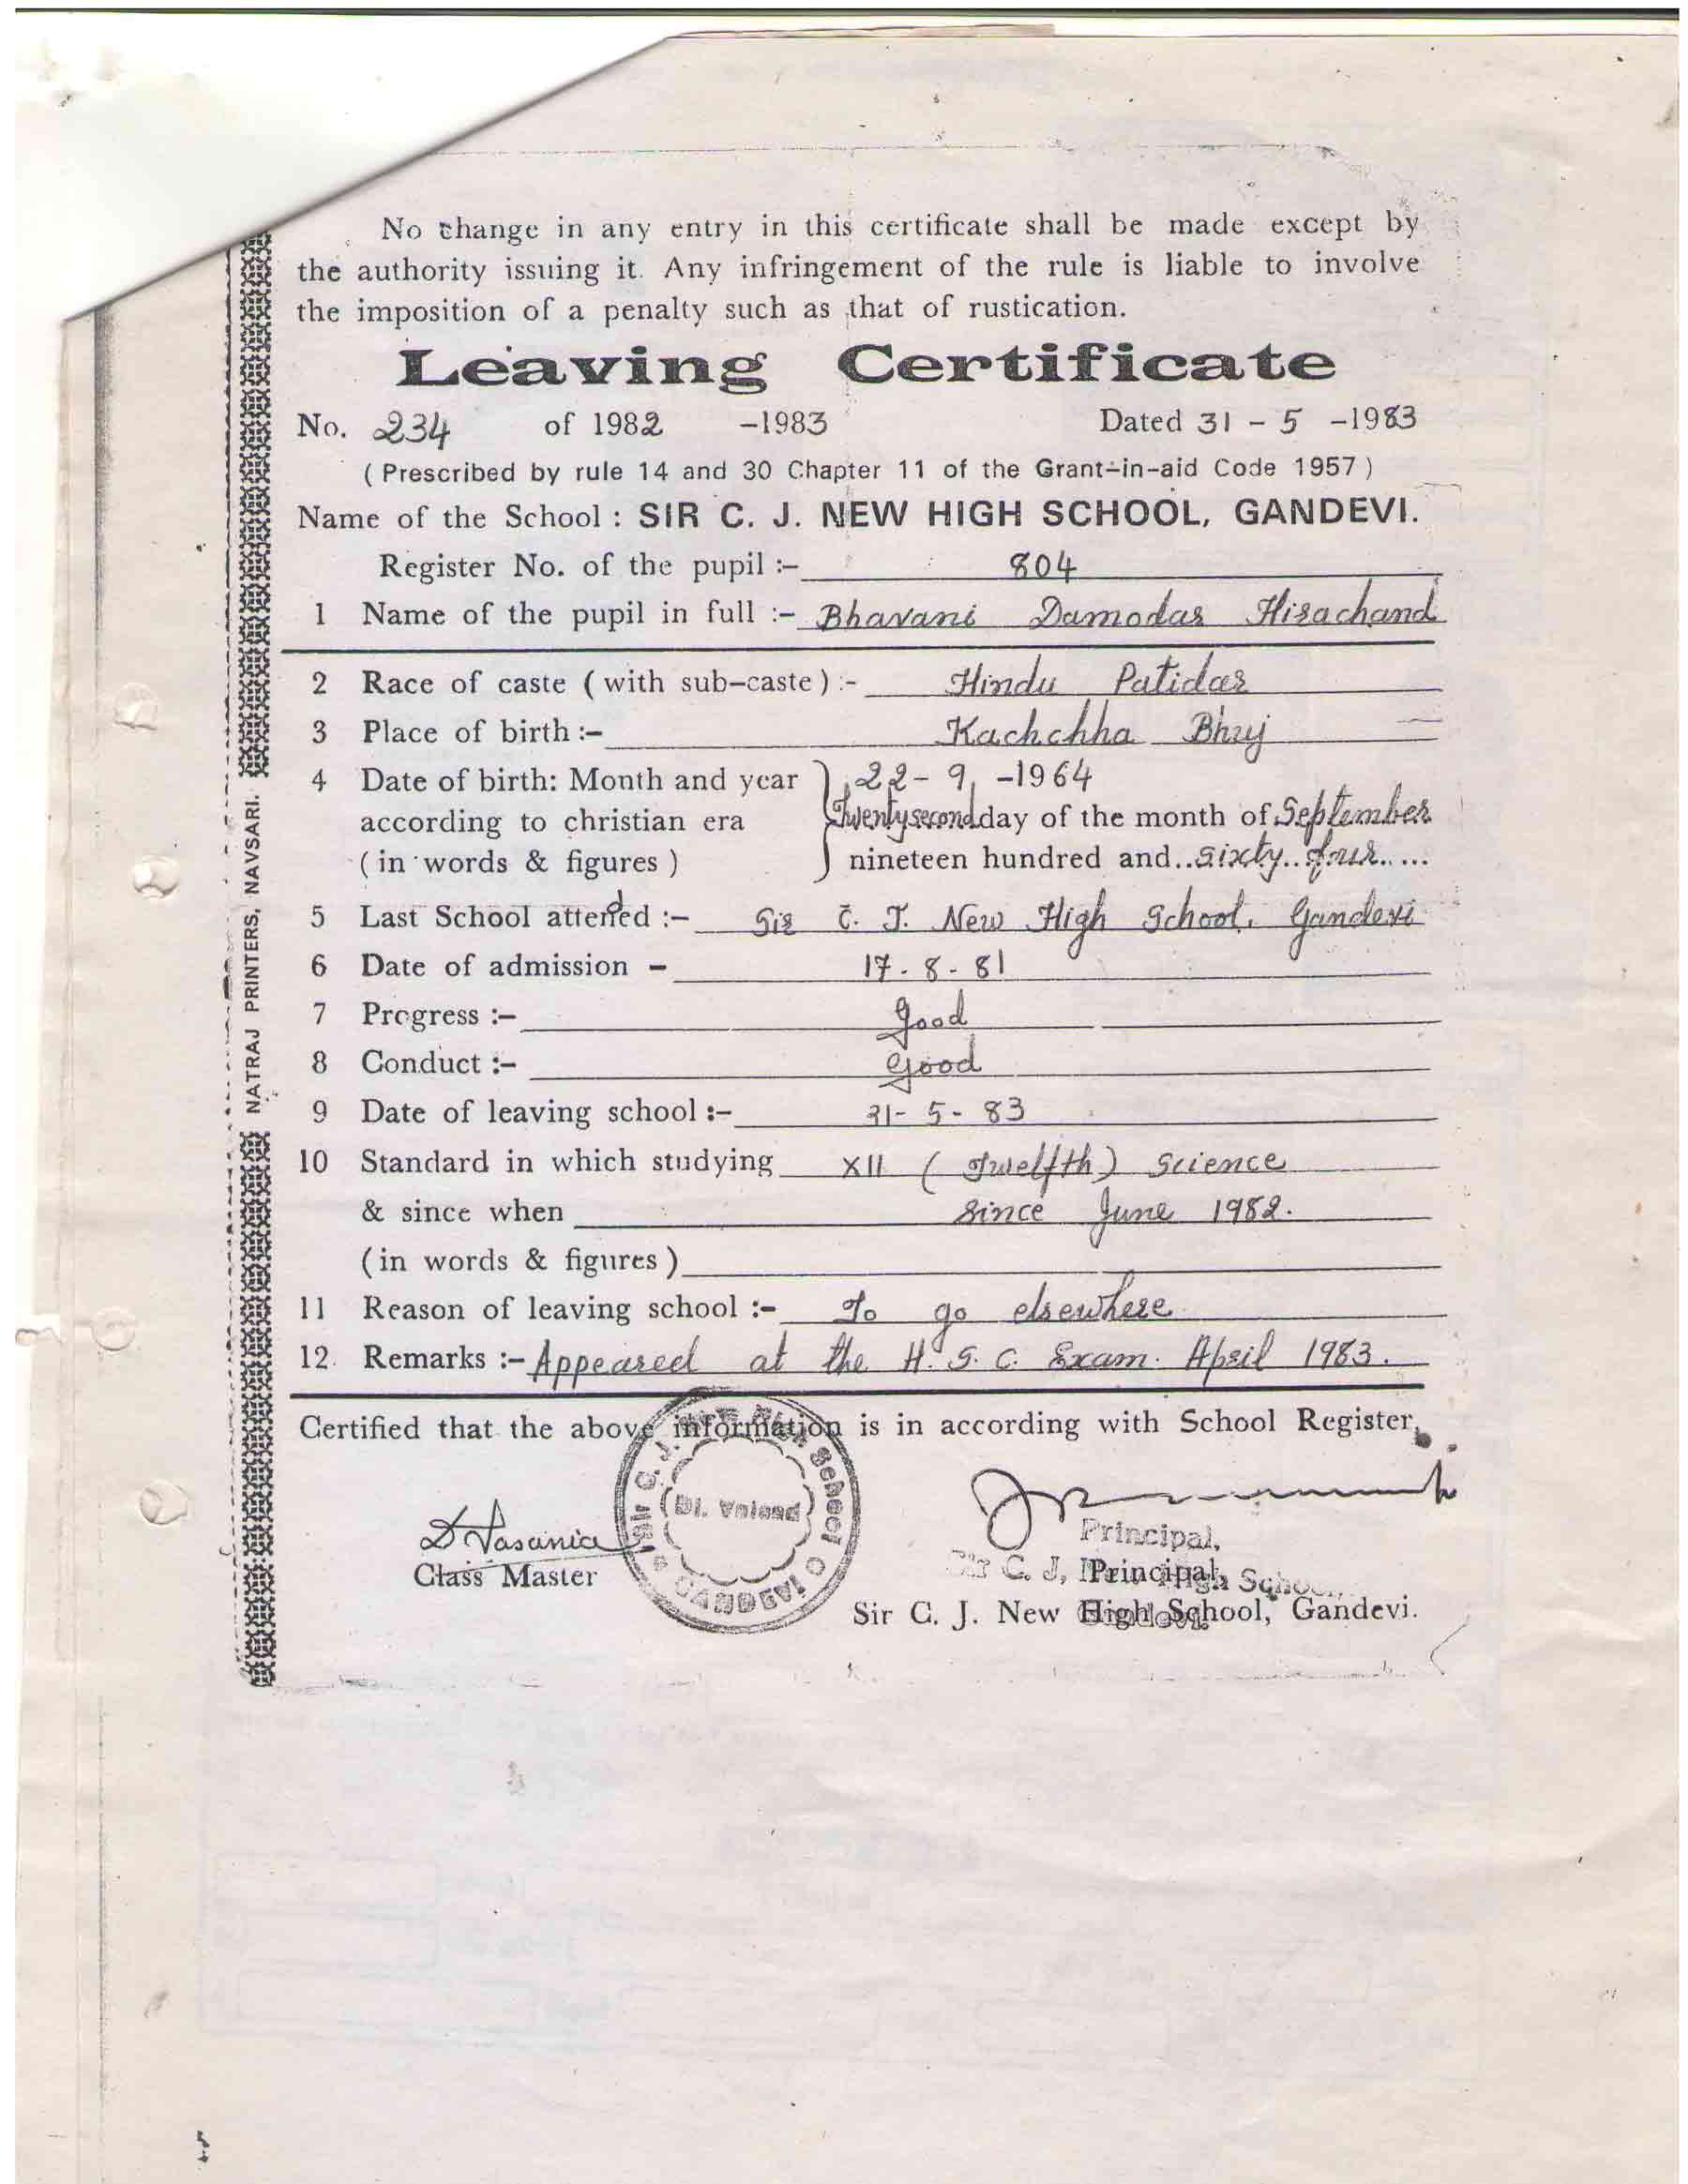 No change in any entry in this certificate shall be made except by
the authority issuing it. Any infringement of the rule is liable to involve
the imposition of a penalty such as that of rustication.
Leaving Certificate
No. 234 of 1982 -1983 Dated 31 - 5 -1983
( Prescribed by rule 14 and 30 Chapter 11 of the Grant-in-aid Code 1957 )
Name of the School : SIR C. J. NEW HIGH SCHOOL, GANDEVI.
Register No. of the pupil :- 804
1 Name of the pupil in full :- Bhavani Damodar Hirachand
2 Race of caste ( with sub-caste ) :- Hindu Patidar
3 Place of birth :- Kachchha Bhuj
4 Date of birth: Month and year 22- 9 -1964
according to christian era Twentysecond day of the month of September
( in words & figures ) nineteen hundred and..sixty..four.....
5 Last School attended :- Sir C. J. New High School, Gandevi
6 Date of admission - 17-8-81
7 Progress :- Good
8 Conduct :- Good
9 Date of leaving school :- 31-5-83
10 Standard in which studying XII ( Twelfth ) Science
& since when Since June 1982.
( in words & figures )
11 Reason of leaving school :- To go elsewhere
12. Remarks :- Appeared at the H. S. C. Exam. April 1983.
Certified that the above information is in according with School Register.
Sir C. J. New High School
GANDEVI
Di. Valsad
D Vasania
Class Master
Principal,
Sir C. J. New High School,
Gandevi.
Principal,
Sir C. J. New High School, Gandevi.
NATRAJ PRINTERS, NAVSARI.